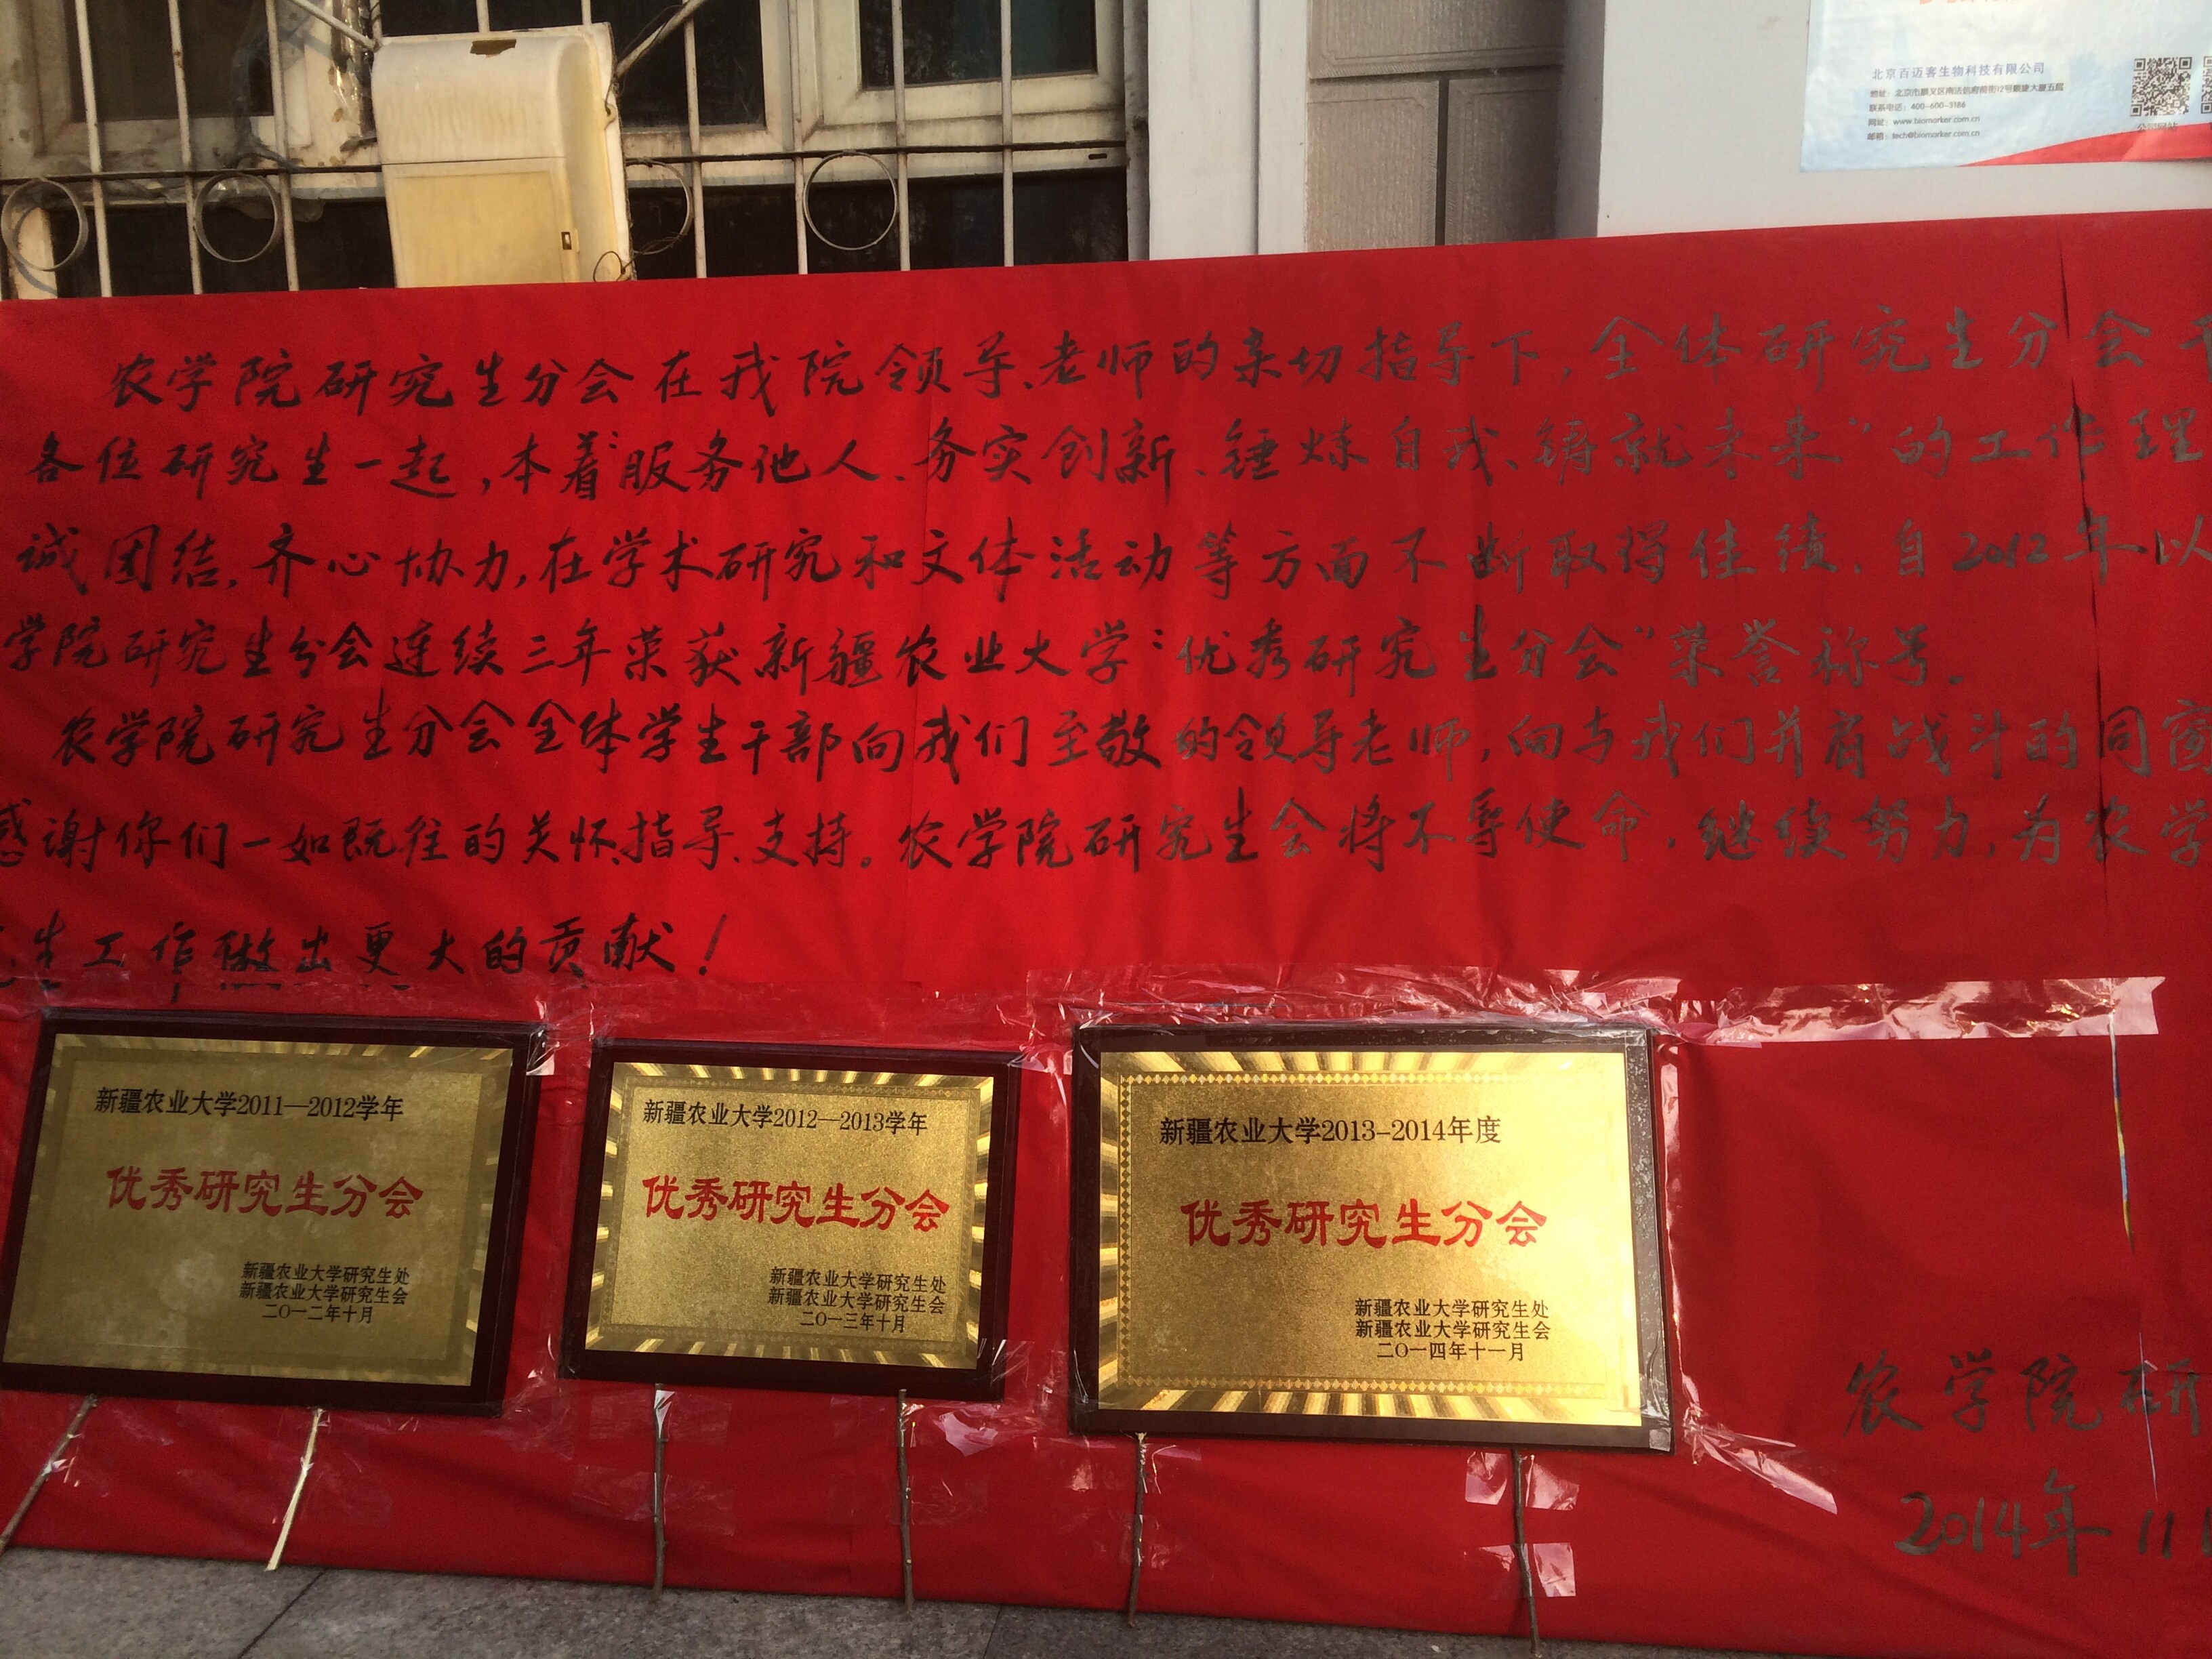 北京百迈客生物科技有限公司
地址：北京市顺义区南法信府前街12号顺捷大厦五层
联系电话：400-600-3186
网址：www.biomarker.com.cn
邮箱：tech@biomarker.com.cn
公司网站
农学院研究生分会在我院领导、老师的亲切指导下，全体研究生分会干
各位研究生一起，本着"服务他人、务实创新、锤炼自我、铸就未来"的工作理
诚团结，齐心协力，在学术研究和文体活动等方面不断取得佳绩，自2012年以
学院研究生分会连续三年荣获新疆农业大学"优秀研究生分会"荣誉称号。
农学院研究生分会全体学生干部向我们至敬的领导老师，向与我们并肩战斗的同窗
感谢你们一如既往的关怀、指导、支持。农学院研究生会将不辱使命，继续努力，为农学
生工作做出更大的贡献！
新疆农业大学2011—2012学年
优秀研究生分会
新疆农业大学研究生处
新疆农业大学研究生会
二〇一二年十月
新疆农业大学2012—2013学年
优秀研究生分会
新疆农业大学研究生处
新疆农业大学研究生会
二〇一三年十月
新疆农业大学2013-2014年度
优秀研究生分会
新疆农业大学研究生处
新疆农业大学研究生会
二〇一四年十一月
农学院研
2014年11